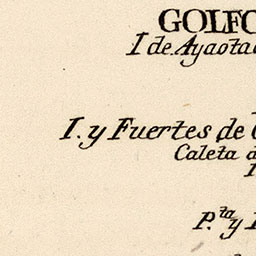 GOLFO
I de Ayaota
I. y Fuertes de
Caleta
P.ta y